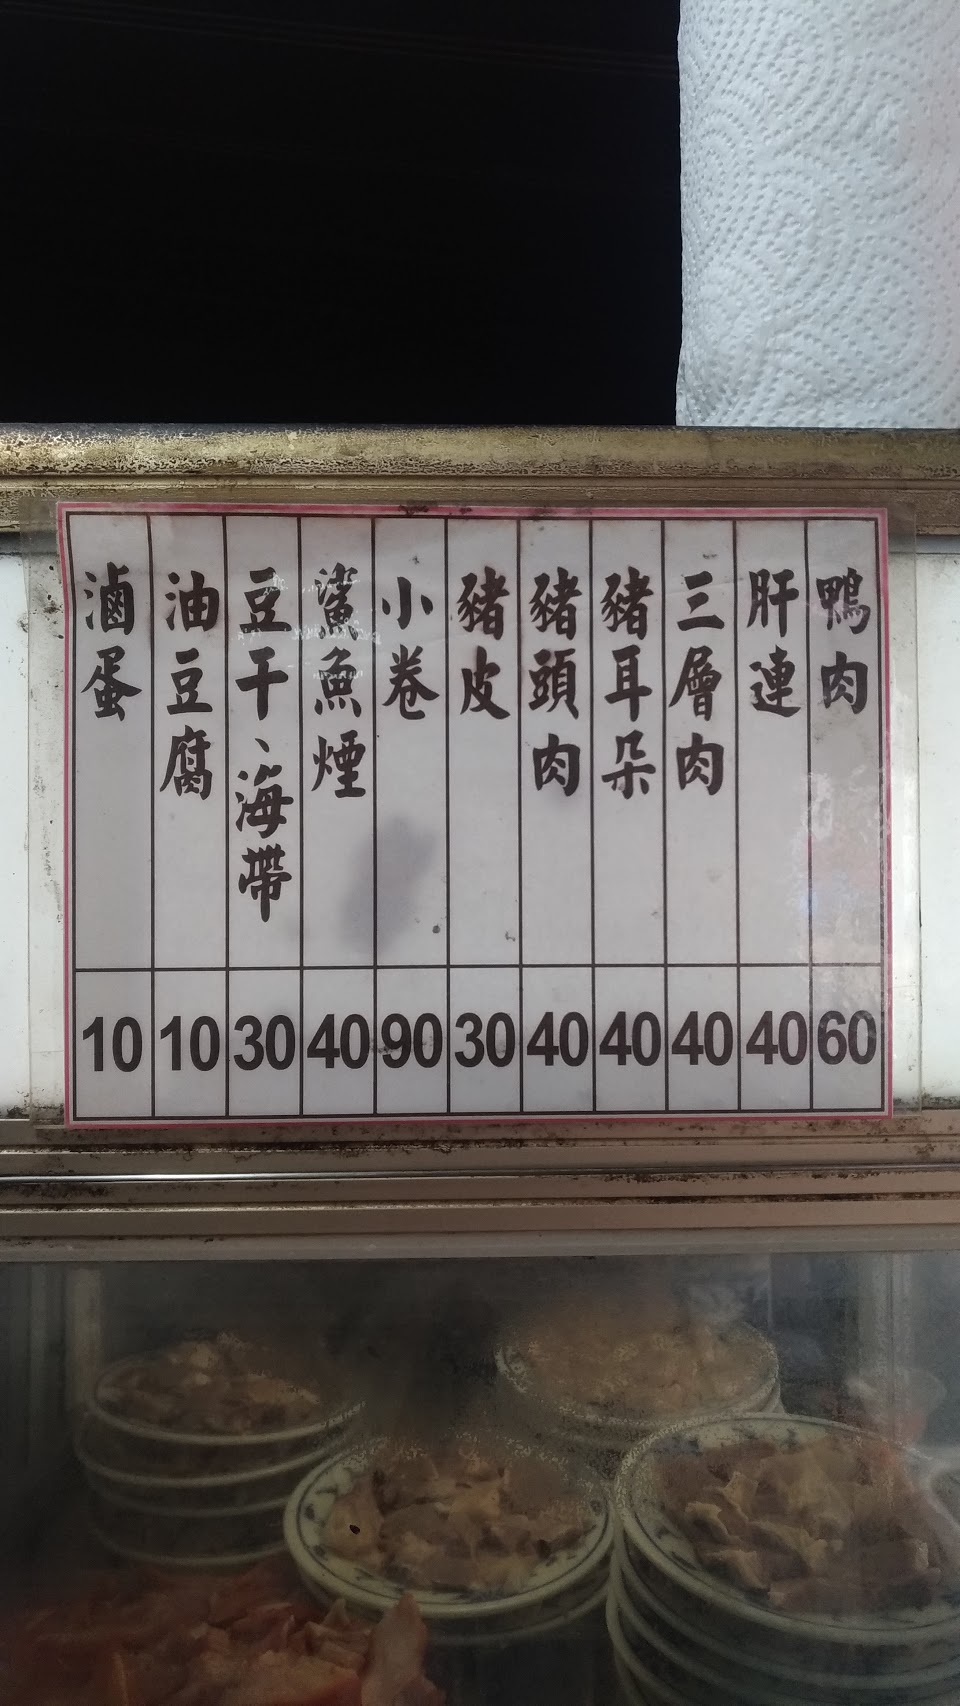 鴨肉 60
肝連 40
三層肉 40
豬耳朵 40
豬頭肉 40
豬皮 30
小卷 90
鯊魚煙 40
豆干、海帶 30
油豆腐 10
滷蛋 10